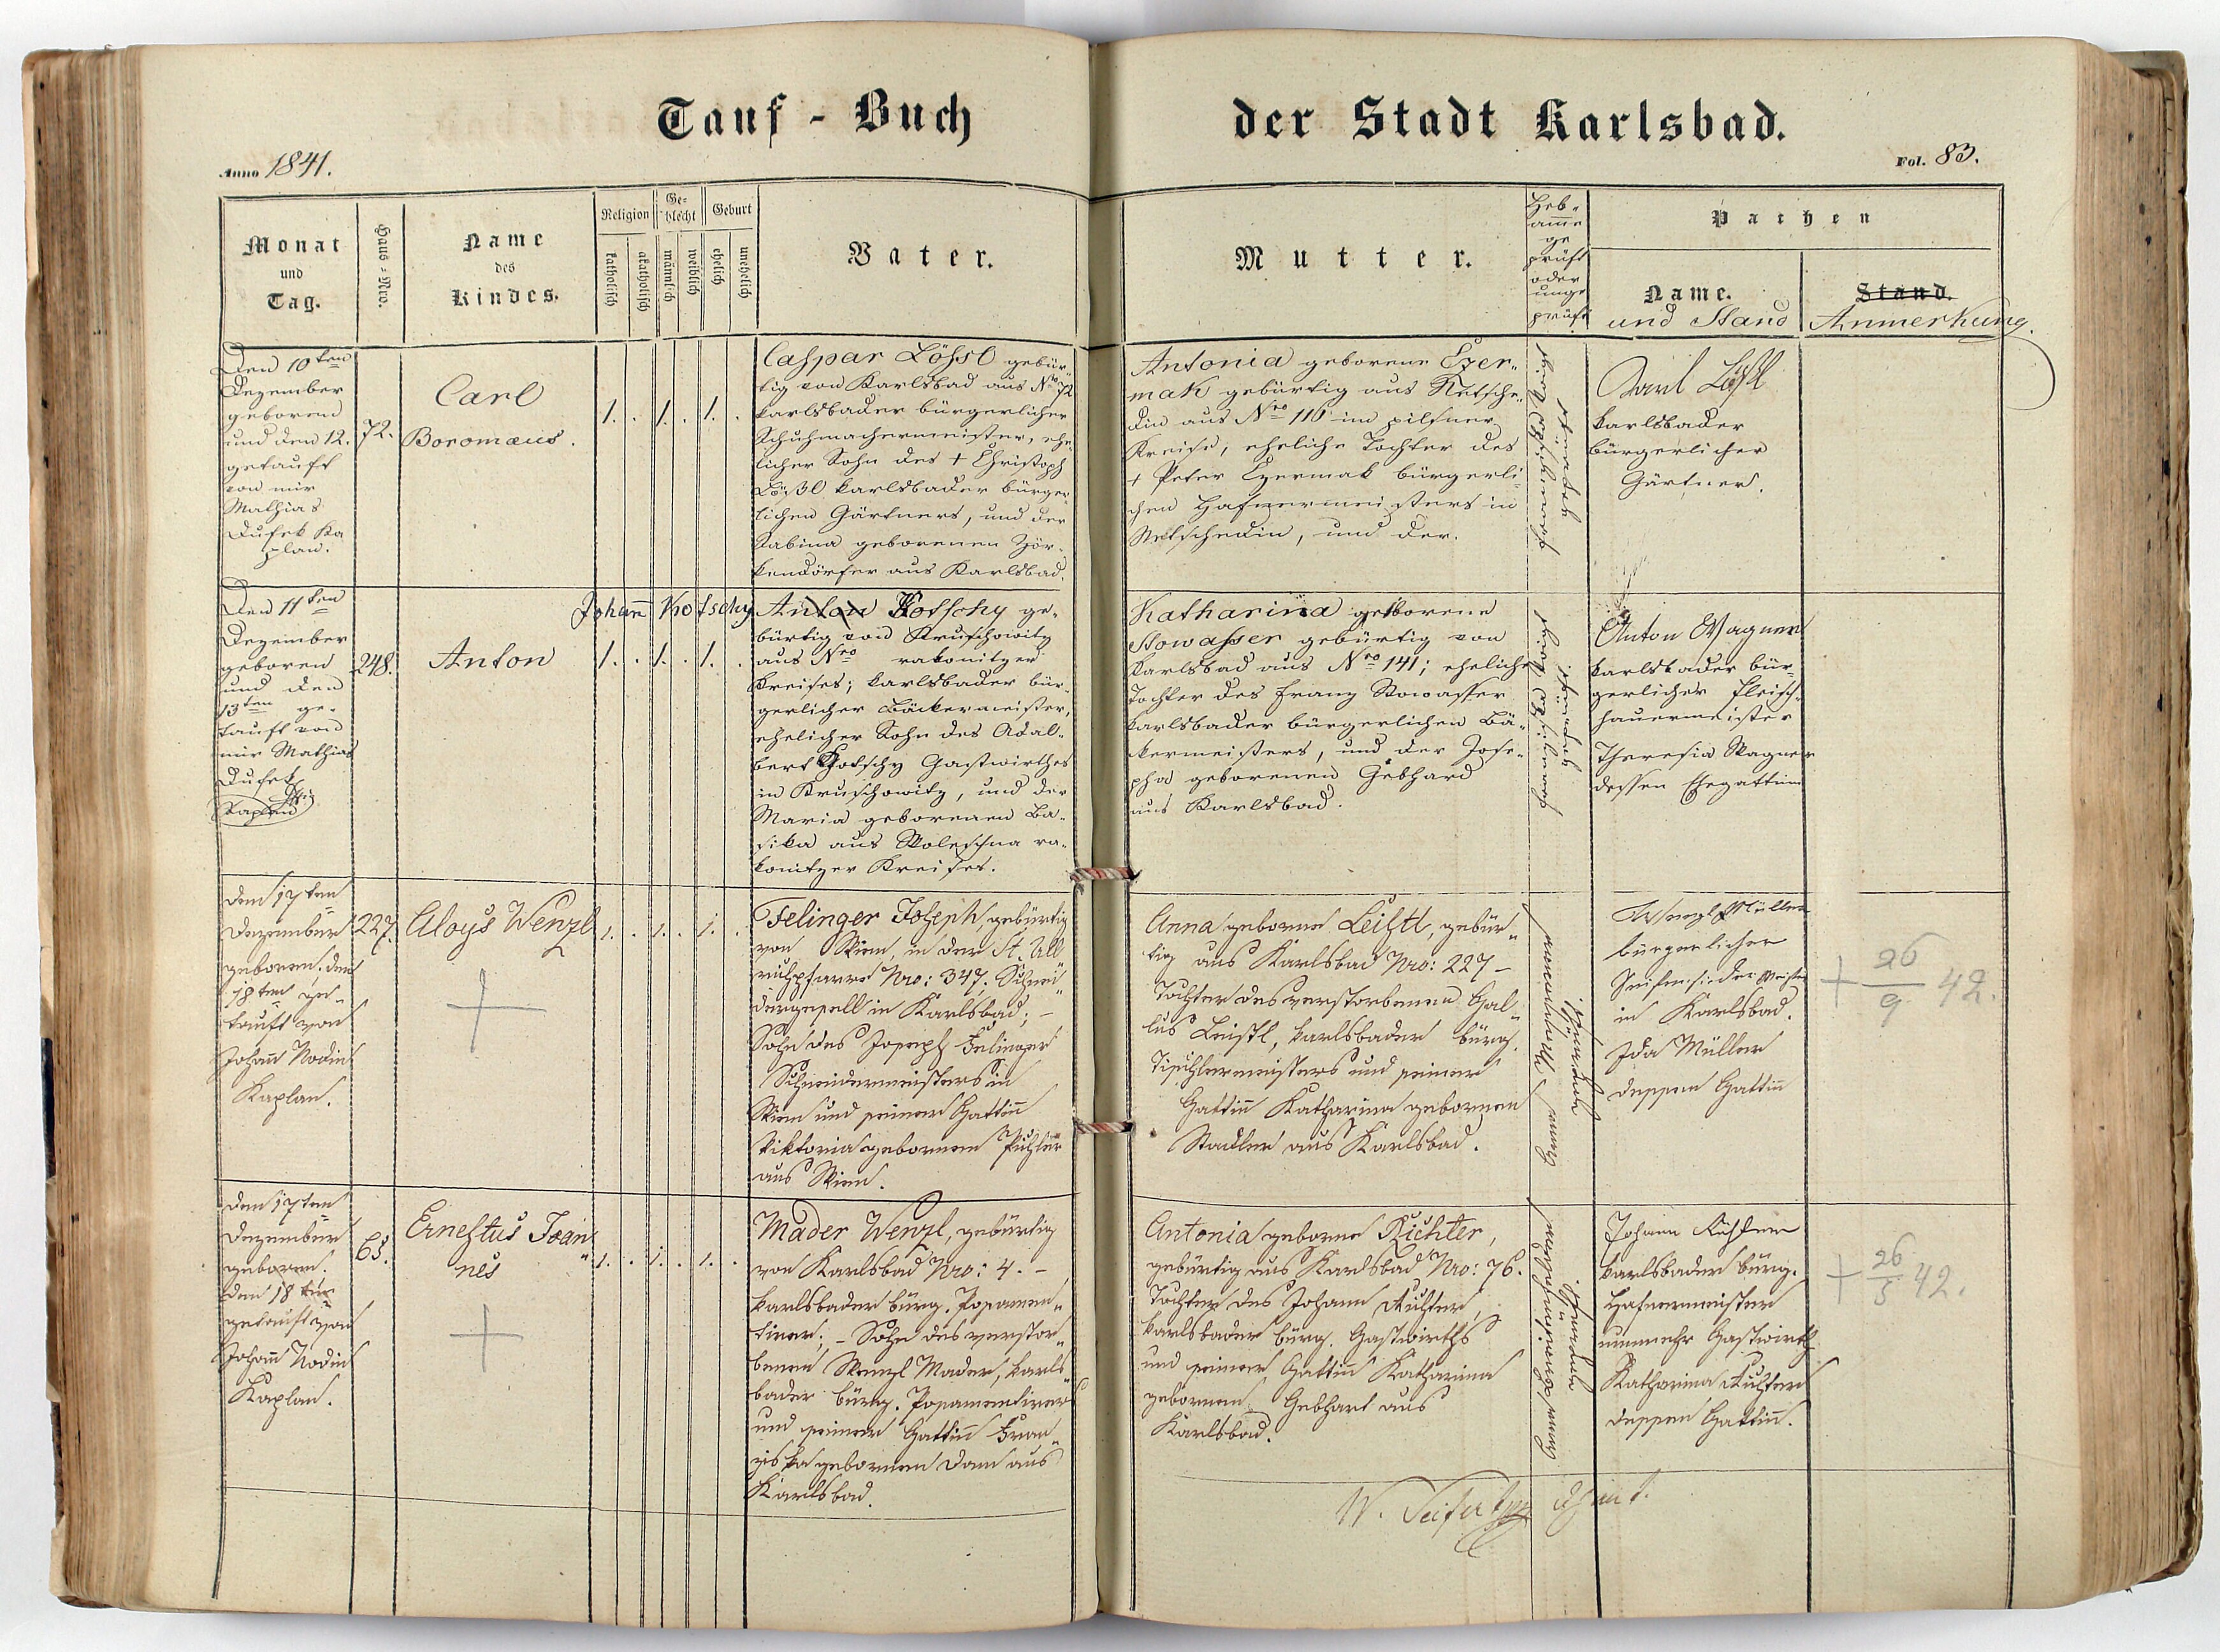 Tauf - Buch
der Stadt Karlsbad.
Anno 1841.
Fol. 83.
Monat
und
Tag.
Haus-Nro.
Name
des
Kindes.
Religion
katholisch
akatholisch
Ge-
schlecht
männlich
weiblich
Geburt
ehelich
unehelich
Vater.
Mutter.
Heb-
amme
ge
prüft
oder
unge
prüft
Pathen
Name.
und Stand
Stand.
Anmerkung.
Den 10ten
Dezember
geboren
und den 12.
getauft
von mir
Mathias
Dufek Ka
plan.
72.
Carl
Boromæus.
1. . 1. . 1. .
Caspar Lößl gebür-
tig von Karlsbad aus Nro 72
karlsbader bürgerlicher
Schuhmachermeister, ehe-
licher Sohn des + Christoph
Lößl karlsbader bürger-
lichen Gärtners, und der
Sabina geborenen Zör-
kendörfer aus Karlsbad.
Antonia geborene Czer-
mak gebürtig aus Netsche-
din aus Nro 116 im pilsner
Kreise, eheliche Tochter des
+ Peter Czermak bürgerli-
chen Hafnermeisters in
Netschedin, und der.
Karl Lößl
karlsbader
bürgerlicher
Gärtner.
Den 11ten
Dezember
geboren
und den
13ten ge-
tauft von
mir Mathias
Dufek
Kaplan
248.
Anton
1. . 1. . 1. .
Johann Kotschy
Anton Kotschy ge-
bürtig von Kruschowitz
aus Nro rakonitzer
Kreises; karlsbader bür-
gerlicher Bäckermeister,
ehelicher Sohn des Adal-
bert Kotschy Gastwirthes
in Kruschowitz, und der
Maria geborenen Ba-
sika aus Woleschna ra-
konitzer Kreises.
Katharina geborene
Stowasser gebürtig von
Karlsbad aus Nro 141; eheliche
Tochter des Franz Stowasser
karlsbader bürgerlichen Bä-
kermeisters, und der Jose-
pha geborenen Gebhard
aus Karlsbad.
Anton Wagner
karlsbader bür-
gerlicher Fleisch-
hauermeister
Theresia Wagner
dessen Ehegattin
Den 17ten
Dezember
geboren. den
18ten ge-
tauft von
Johann Nodin
Kaplan.
227.
Aloys Wenzl
1. . 1. . 1. .
Felinger Joseph, gebürtig
von Wien, in der St. Ull
richpfarre Nro: 347. Schnei
dergesell in Karlsbad; -
Sohn des Joseph Felinger
Schneidermeisters in
Wien und seiner Gattinn
Viktoria gebornen Puchler
aus Wien.
Anna geborne Leistl, gebür-
tig aus Karlsbad Nro: 227 -
Tochter des verstorbenen Gal-
lus Leistl, karlsbader bürg.
Tischlermeisters und seiner
Gattinn Katharina gebornen
Stadler aus Karlsbad.
geprüft
Wenzl Müller
bürgerlicher
Seifensieder Meister
in Karlsbad.
Ida Müller
dessen Gattinn
+ 26/9 42.
Den 17ten
Dezember
geboren.
den 18ten
getauft von
Johann Nodin
Kaplan.
65.
Ernestus Joan
nes
1. . 1. . 1. .
Mader Wenzl, gebürtig
von Karlsbad Nro: 4. -
karlsbader bürg. Posamen-
tirer; - Sohn des verstor-
benen Wenzl Mader, karls
bader bürg. Posamentirers
und seiner Gattinn Fran
ziska gebornen Dam aus
Karlsbad.
Antonia geborne Richter,
gebürtig aus Karlsbad Nro: 76.
Tochter des Johann Richter,
karlsbader bürg. Gastwirths
und seiner Gattinn Katharina
gebornen Gebhart aus
Karlsbad.
Johann Richter
karlsbader bürg.
Hafnermeister
nunmehr Gastwirth
Katharina Richter
dessen Gattinn.
+ 26/5 42.